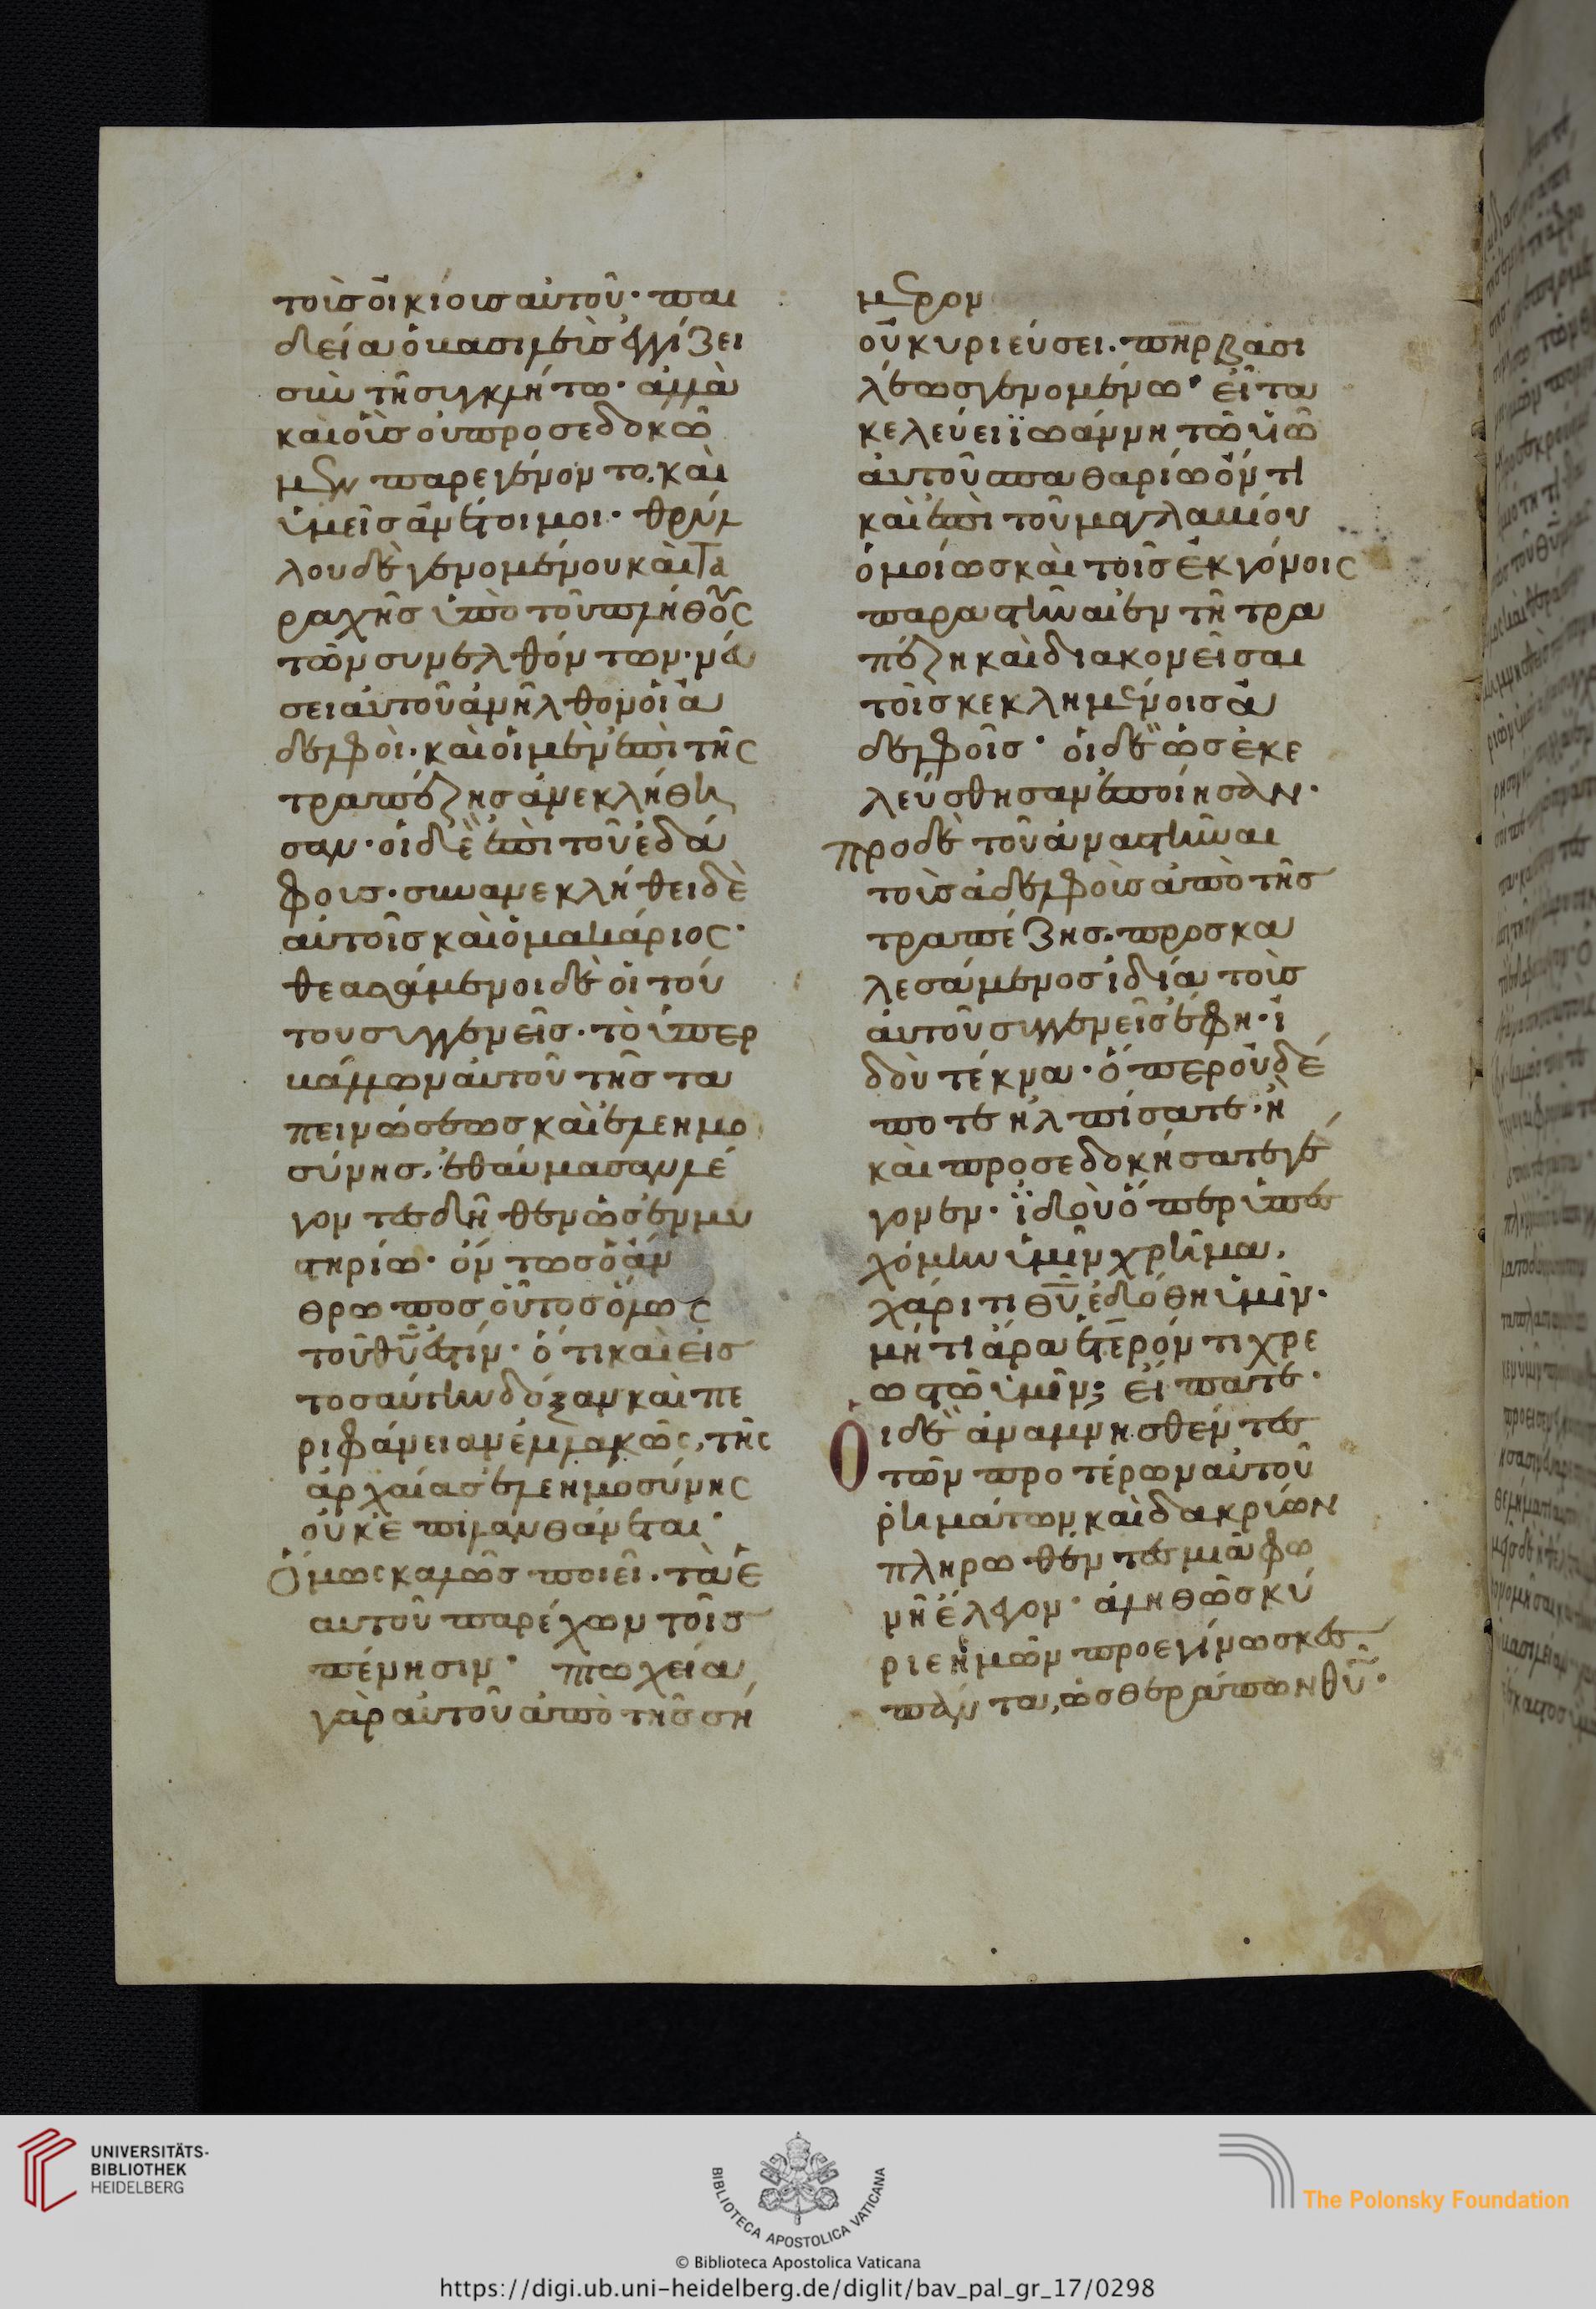 τοῖς οἰκίοις αὐτοῦ· παι
δεία ὁ βασιλεὺς ἐγγίζει
σὺν τῇ συγκλήτω· ἀλλὰ
καὶ οἷς οὐ προσεδοκῶ
μεν παρεγένοντο. καὶ
ὑμεῖς ἂν ἕτοιμοι· θρύλ
λου δὲ γενομένου καὶ τα
ραχῆς ὑπὸ τοῦ πλήθους
τῶν συνελθόντων· νεύ
σει αὐτοῦ ἀνῆλθον οἱ ἀ
δελφοὶ· καὶ οἱ μὲν ἐπὶ τῆς
τραπέζης ἀνεκλήθη
σαν· οἱ δὲ ἐπὶ τοῦ ἐδά
φους· συνανεκλήθει δὲ
αὐτοῖς καὶ ὁ μακάριος·
θεασάμενοι δὲ οἱ τού
του συγγενεῖς· τὸ ὑπερ
βάλλον αὐτοῦ τῆς τα
πεινώσεως καὶ ἐλεημο
σύνης, ἐθαύμασαν λέ
γοντες δὴ θενῶς ἐν μυ
στηρίω· ὄντως ὁ ἄν
θρωπος οὗτος ὅλως
τοῦ θῦ ἐστίν· ὅτι καὶ εἰς
τοσαύτην δόξαν καὶ πε
ριφάνειαν ἐμλακῶς, τῆς
ἀρχαίας ἐλεημοσύνης
οὐκ ἐπιλανθάνεται·
Ὅμως καλῶς ποιεῖ. τὰ ἑ
αυτοῦ παρέχων τοῖς
πένησιν· πτωχεία
γὰρ αὐτοῦ ἀπὸ τῆς σή
μερον
οὐ κυριεύσει. πηρ βασι
λέως γενομένω· εἶτα
κελεύει ϊωάννη τῶ υἱῶ
αὐτοῦ παθαρίω ὄντι
καὶ ἐπὶ τοῦ μαγλαβίου
ὁμοίως καὶ τοῖς ἐκγόνοις
παραστῆναι ἐν τῇ τρα
πέζη καὶ διακονεῖσαι
τοῖς κεκλημένοις ἀ
δελφοῖς· οἱ δὲ ὡς ἐκε
λεύσθησαν ἐποίησαν·
προ δὲ τοῦ ἀναστῆναι
τοὺς ἀδελφοὺς ἀπὸ τῆς
τραπέζης. προσκα
λεσάμενος ἰδία τοὺς
αὐτοῦ συγγενεῖς ἔφη· ἰ
δοὺ τέκνα· ὅπερ οὐδέ
ποτε ἠλπίσατε· ἢ
καὶ προσεδοκήσατε γέ
γονεν· ϊδοὺ ὅπερ ὑπε
χόμην ὑμῖν χρῆμα,
χάριτι θῦ ἐδόθη ὑμῖν·
μή τι ἄρα ἕτερόν τι χρε
ωστῶ ὑμῖν; εἴπατε·
Οἱ δὲ ἀναμνησθέντες
τῶν προτέρων αὐτοῦ
ῥημάτων καὶ δακρύων
πληρωθέντες μιᾶ φω
νῇ ἔλεγον· ἀληθῶς κύ
ριε ἡμῶν προεγίνωσκες
πάντα, ὡς θεράπων θῦ·
UNIVERSITÄTS-
BIBLIOTHEK
HEIDELBERG
BIBLIOTECA APOSTOLICA VATICANA
The Polonsky Foundation
© Biblioteca Apostolica Vaticana
https://digi.ub.uni-heidelberg.de/diglit/bav_pal_gr_17/0298